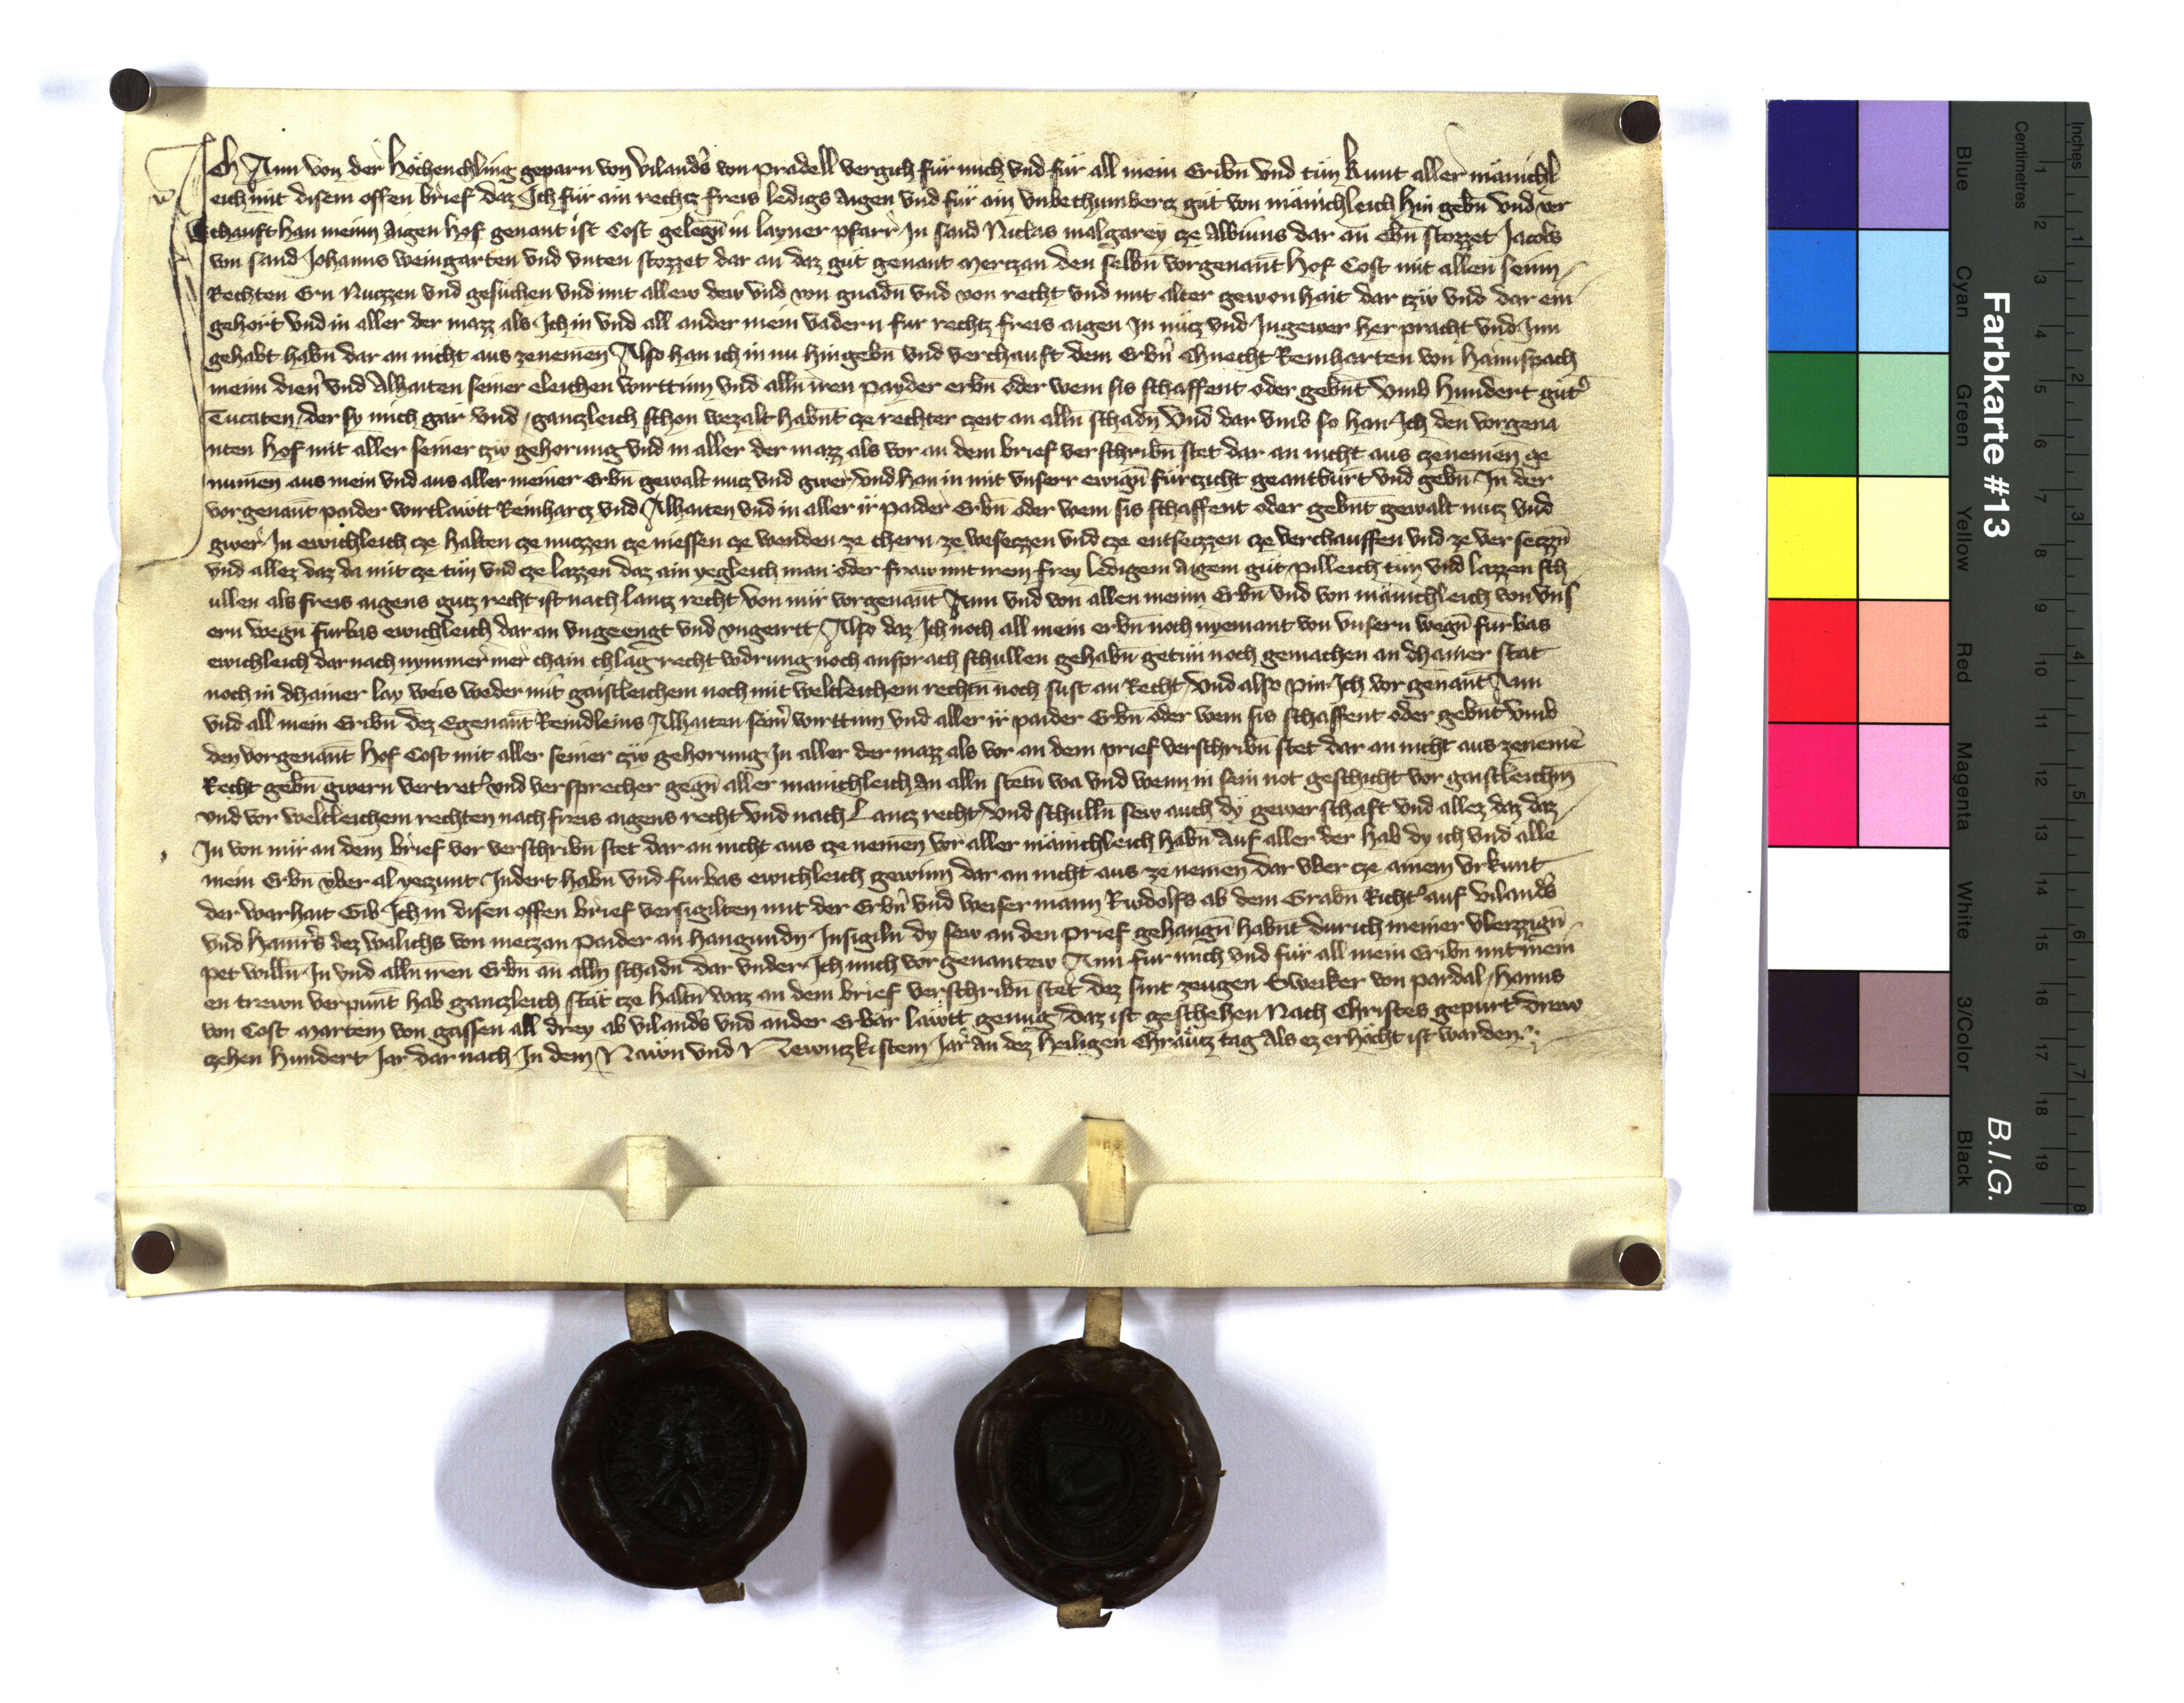 Ich Ann von der Hochenchling geparn von vilandͤs von pradell vergich für mich vnd für all mein Eribn̄ vnd tün kunt aller mänichl
eich mit disem offen brief daz Ich für ain rechtz freis ledigs aigen vnd für ain vnbechumbertz güt von mänichleich hin gebn̄ vnd ver
chauft han meinn aigen hof genant ist Cost gelegn̄ in layner pfarr In sand Niclas malgarey cze Albiuns dar an ebn̄ stozzet Jacobs
von sand Johanns weingarten vnd vnten stozzet dar an daz güt genant Mertzan den selbn̄ vorgenant̄ hof Cost mit allen seinn
Rechten Ern Nuczzen vnd gesüchen vnd mit allew dew vnd von gnadn̄ vnd von recht vnd mit alter gewonhait dar czü vnd dar ein
gehört vnd in aller der mazz als Ich in vnd all ander mein vadern fur rechtz freis aigen In nütz vnd In gewer her pracht vnd Inn
gehabt habn̄ dar an nicht aus zenemen Also han ich in nu hingebn̄ vnd verchauft dem Erbn̄ chnecht Reinharten von hannspach
meim dien̄ vnd Alhaiten seiner eleichen wirttinn vnd alln̄ iren payder erbn̄ oder wem sis schaffent oder gebnt̄ vmb hundert güt
Tucaten der sy mich gar vnd ganczleich schon wezalt habnt̄ cze rechter czeit an alln̄ schadn̄ vnd dar vmb so han Ich den vorgena
nten hof mit aller seiner czü gehorung vnd in aller der mazz als vor an dem brief verschribn̄ stet dar an nicht aus czenemen ge
numēn aus mein vnd aus aller meiner Erbn̄ gewalt nutz vnd gwer vnd han in mit vnserr ewign̄ fürczicht geantburt vnd gebn̄ In der
vorgenant̄ paider wirtläwtt Reinhartz vnd Alhaiten vnd in aller ir paider Erbn̄ oder wem sis schaffent oder gebnt̄ gewalt nutz vnd
gwer In ewichleich cze halten cze nuczzen cze niessen cze wenden ze chern ze weseczzen vnd cze entseczzen cze verchauffen vnd ze verseczzn̄
vnd allez daz da mit cze tün vnd cze lazzen daz ain yegleich man oder fraw mit irem frey ledigem aigem güt pilleich tün vnd lazzen sch
ullen als freis aigens gutz recht ist nach lantz recht von mir vorgenant̄ Ann vnd von allen meinn Erbn̄ vnd von mänichleich von vns
ern wegn̄ furbas ewichleich dar an vngeengt vnd vngeirtt Also daz Ich noch all mein erbn̄ noch nyemant von vnsern wegn̄ furbas
ewichleich dar nach nymmer mer chain chlag recht vodrung noch ansprach schullen gehabn̄ getün noch gemachen an dhainer stat
noch in dhainer lay weis weder mit gaistleichem noch mit weltleichem rechtn̄ noch sust an Recht vnd also pin Ich vor genant̄ Ann
vnd all mein Eribn̄ dez Egenant̄ Reindleins Alhaiten seinͤ wirttinn vnd aller ir paider Erbn̄ oder wem sis schaffent oder gebnt̄ vmb
den vorgenant̄ hof Cost mit aller seiner czü gehorung In aller der mazz als vor an dem prief verschribn̄ stet dar an nicht aus zenemē
Recht gebn̄ gwern vertretͤ vnd versprecher gegn̄ aller mänichleich An alln̄ stetn̄ wa vnd wenn in sein not geschicht vor gaistleichm̄
vnd vor weltleichem rechten nach freis aigens recht vnd nach Lantz recht vnd schulln̄ sew auch dy gewerschaft vnd allez daz daz
In von mir an dem brief vor verschribn̄ stet dar an nicht aus cze nemen̄ vor aller mänichleich habn̄ Auf aller der hab dy ich vnd alle
mein Erbn̄ vber al yeczunt Indert habn̄ vnd furbas ewichleich gewinn dar an nicht aus ze nemen dar vber cze ainem vrkunt
der warhait Gib Ich in disen offen brief versigilten mit der Erbn̄ vnd weiser mann Rudolfs ab dem Grabn̄ Richtͤ auf vilandͤs
vnd hainrͤs dez walichs von meczan paider an hangundn̄ Insigiln̄ dy sew an den prief gehangn̄ habnt̄ durich meiner vlerzzign̄
pet willn̄ In vnd alln̄ iren Erbn̄ an alln̄ schadn̄ dar vnder Ich mich vor genantew Ann fur mich vnd für all mein Eribn̄ mit mein
en trewn verpunt̄ hab ganczleich stät cze haltn̄ waz an dem brief verschribn̄ stet dez sint zeugen Sweiker von pardal hanns
von Cost Martein von gassen all drey ab vilandͤs vnd ander Erbär läwtt genug daz ist geschehen Nach Christes gepurt drew
czehen hundert Jar dar nach In dem Näwn vnd Newntzkistem Jar an dez heiligen chräutz tag Als ez erhöcht ist warden
Farbkarte #13
B.I.G.
Inches
1 2 3 4 5 6 7 8
Centimetres
1 2 3 4 5 6 7 8 9 10 11 12 13 14 15 16 17 18 19
Blue Cyan Green Yellow Red Magenta White 3/Color Black